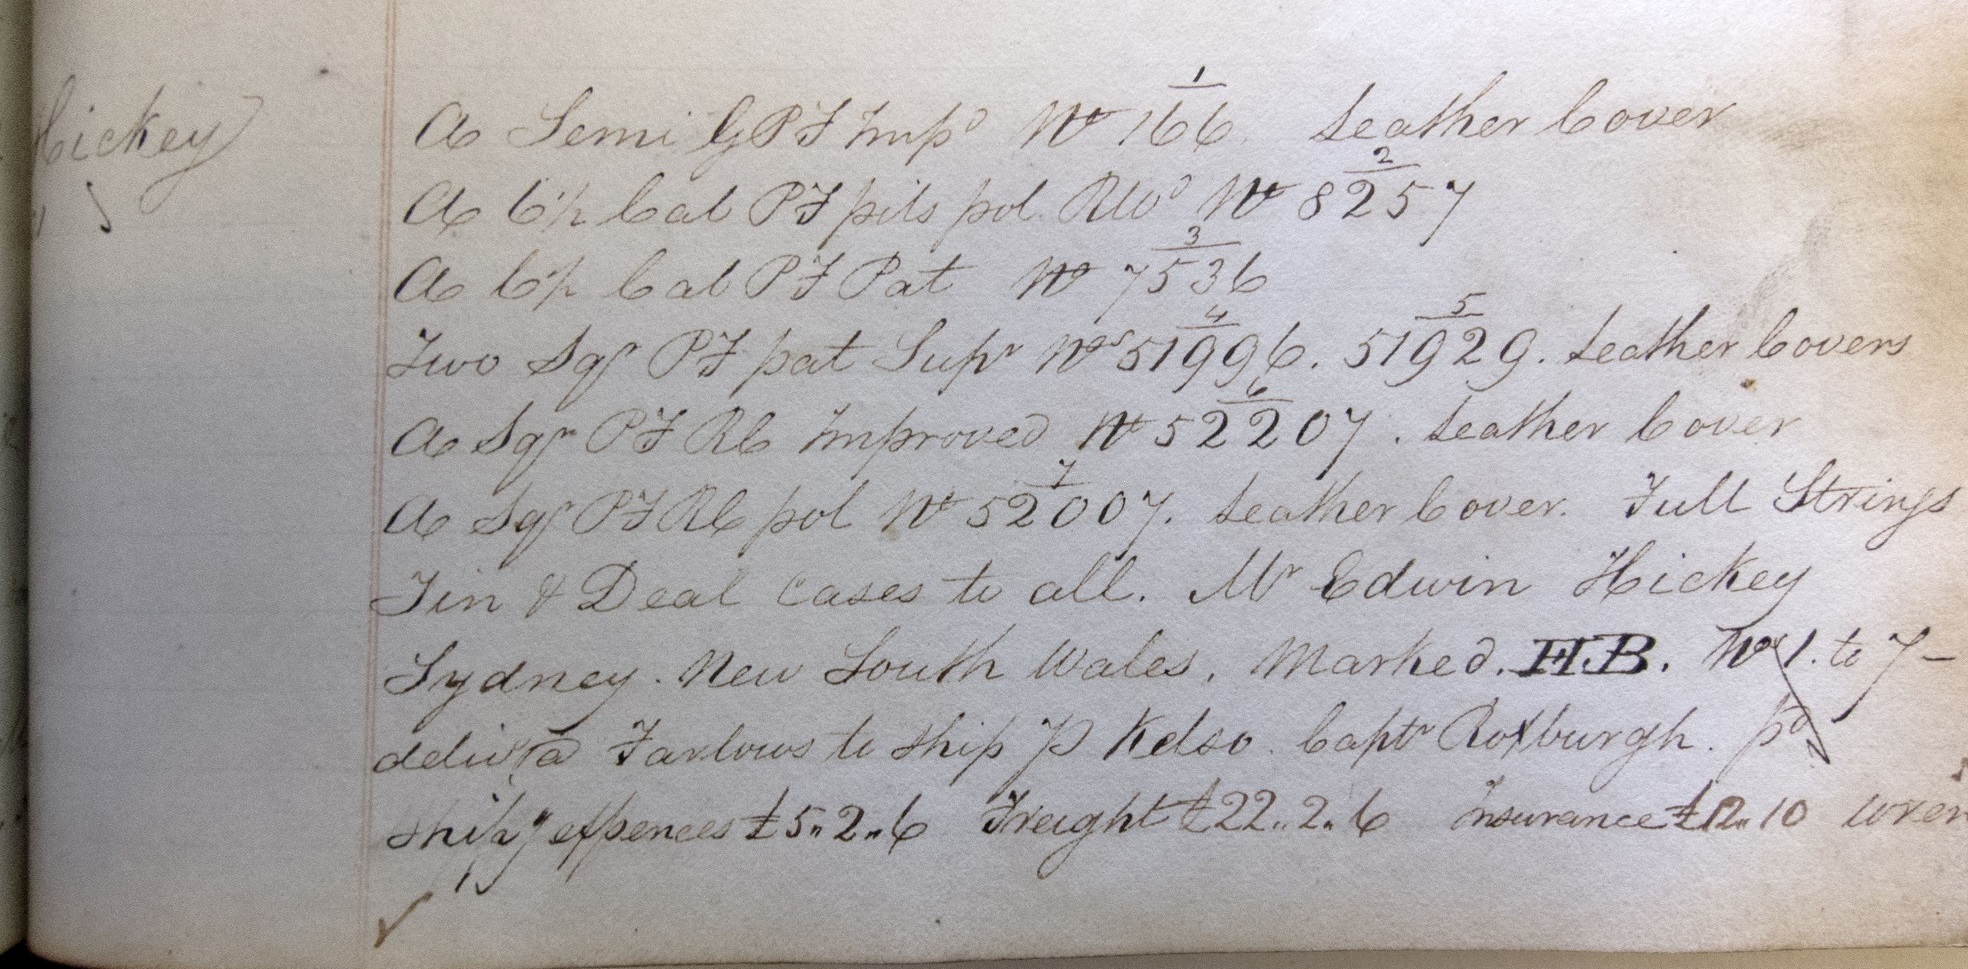 Hickey
A Semi G P F Imp^d No 166 Leather Cover
1
A C^h Cab P F pils pol RW^d No 8257
2
A C^h Cab P F Pat No 7536
3
Two Sqr P F pat Sup^r Nos 51996. 51929. Leather Covers
4 5
A Sqr P F RC Improved No 52207. Leather Cover
6
A Sqr P F RC pol No 52007. Leather Cover. Full Strings
7
Tin & Deal Cases to all. Mr Edwin Hickey
Sydney. New South Wales. Marked. H.B. Nos 1. to 7 –
deliv^d a Farlows to Ship P Kelso. Capt^n Roxburgh. p^d
Ship^g expences £5.. 2.. 6 Freight £22.. 2.. 6 Insurance £12.. 10